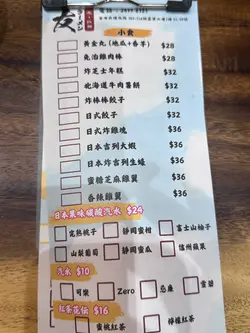 友
ラーメン
小食
黄金丸 (地瓜+香芋) $28
免治雞肉棒 $28
炸芝士年糕 $32
北海道牛肉薯餅 $32
炸棒棒餃子 $32
日式餃子 $32
日式炸雞塊 $36
日本吉列大蝦 $36
日本炸吉列生蠔 $36
蜜糖芝麻雞翼 $36
香辣雞翼 $36
日本果味碳酸汽水 $24
完熟桃子 靜岡柑 富士山柚子
山梨葡萄 靜岡蜜瓜 信州蘋果
汽水 $10
可樂 Zero 忌廉 雪碧
紅茶花伝 $16
蜜桃紅茶 檸檬紅茶